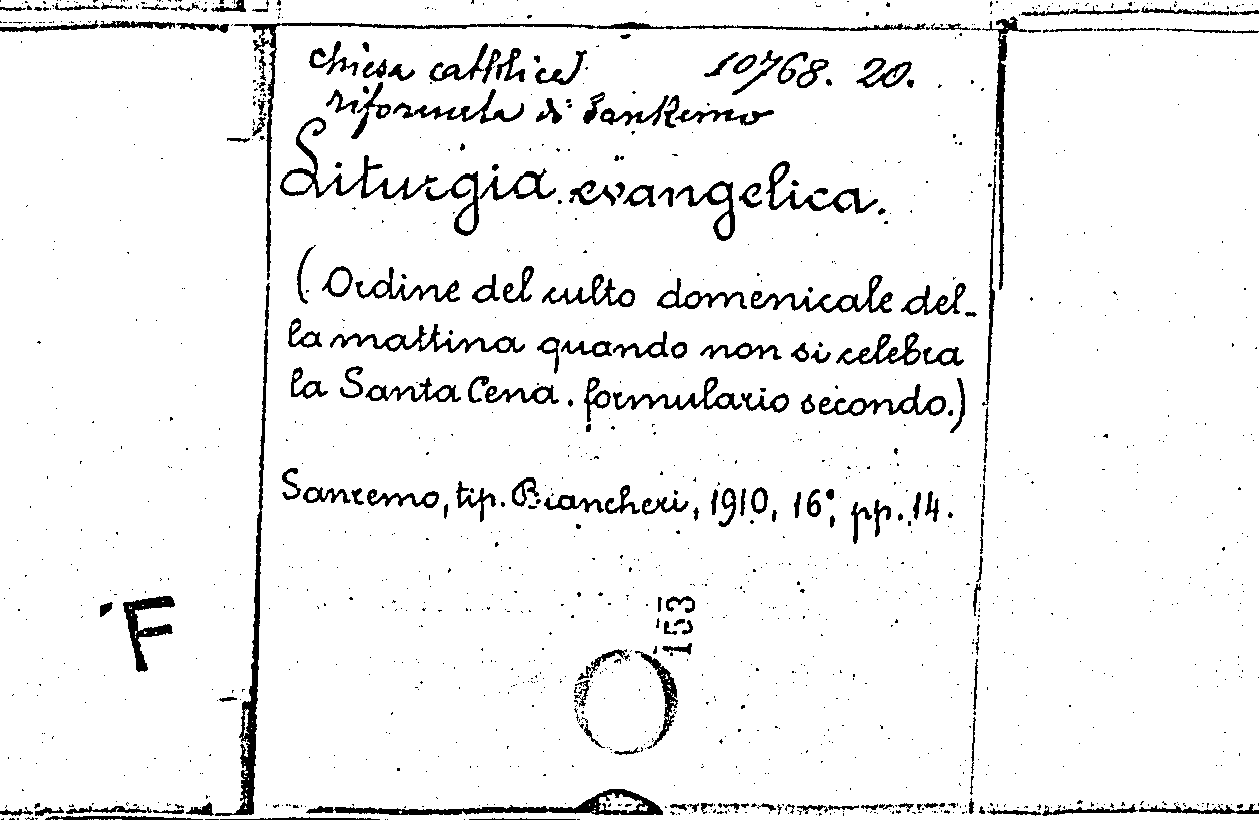 Chiesa cattolica 10768. 20.
riformata di SanRemo
Liturgia evangelica.
(Ordine del culto domenicale del-
la mattina quando non si celebra
la Santa Cena. formulario secondo.)
Sanremo, tip. Biancheri, 1910, 16°, pp. 14.
F
153